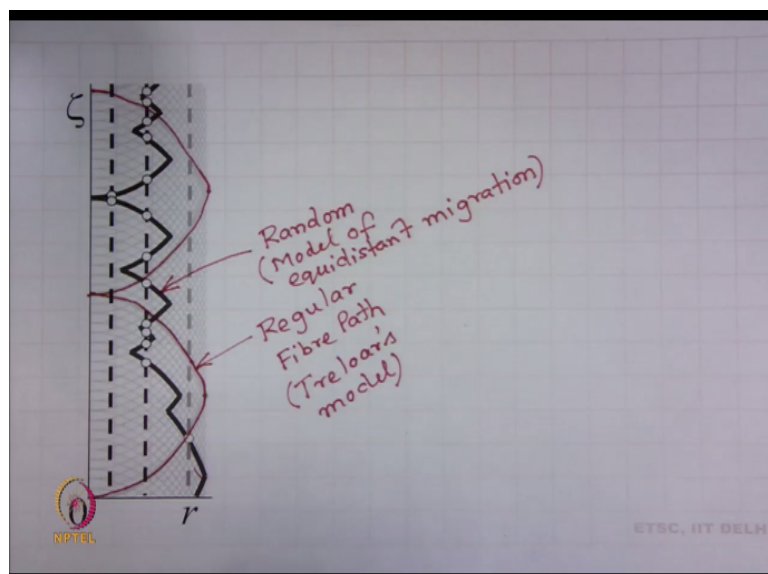 ζ
Random
(Model of
equidistant migration)
Regular
Fibre Path
(Treloar's
model)
0
r
NPTEL
ETSC, IIT DELHI